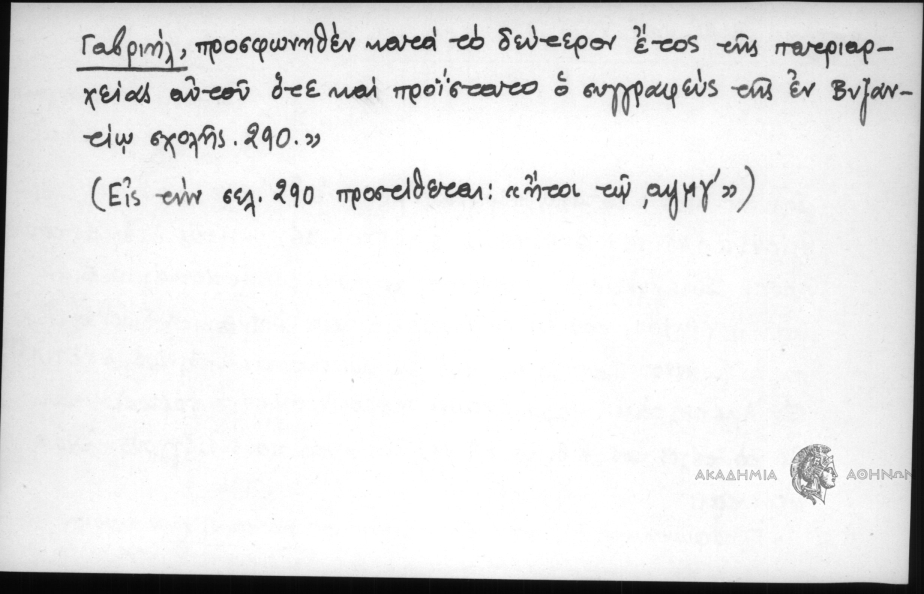 Γαβριήλ, προσφωνηθὲν κατὰ τὸ δεύτερον ἔτος τῆς πατριαρ-
χείας αὐτοῦ ὅτε καὶ προΐστατο ὁ συγγραφεὺς τῆς ἐν Βυζαν-
τίῳ σχολῆς. 290.»
(Εἰς τὴν σελ. 290 προστίθεται: «ἤτοι τῷ ͵αψμγʹ»)
ΑΚΑΔΗΜΙΑ ΑΘΗΝΩΝ